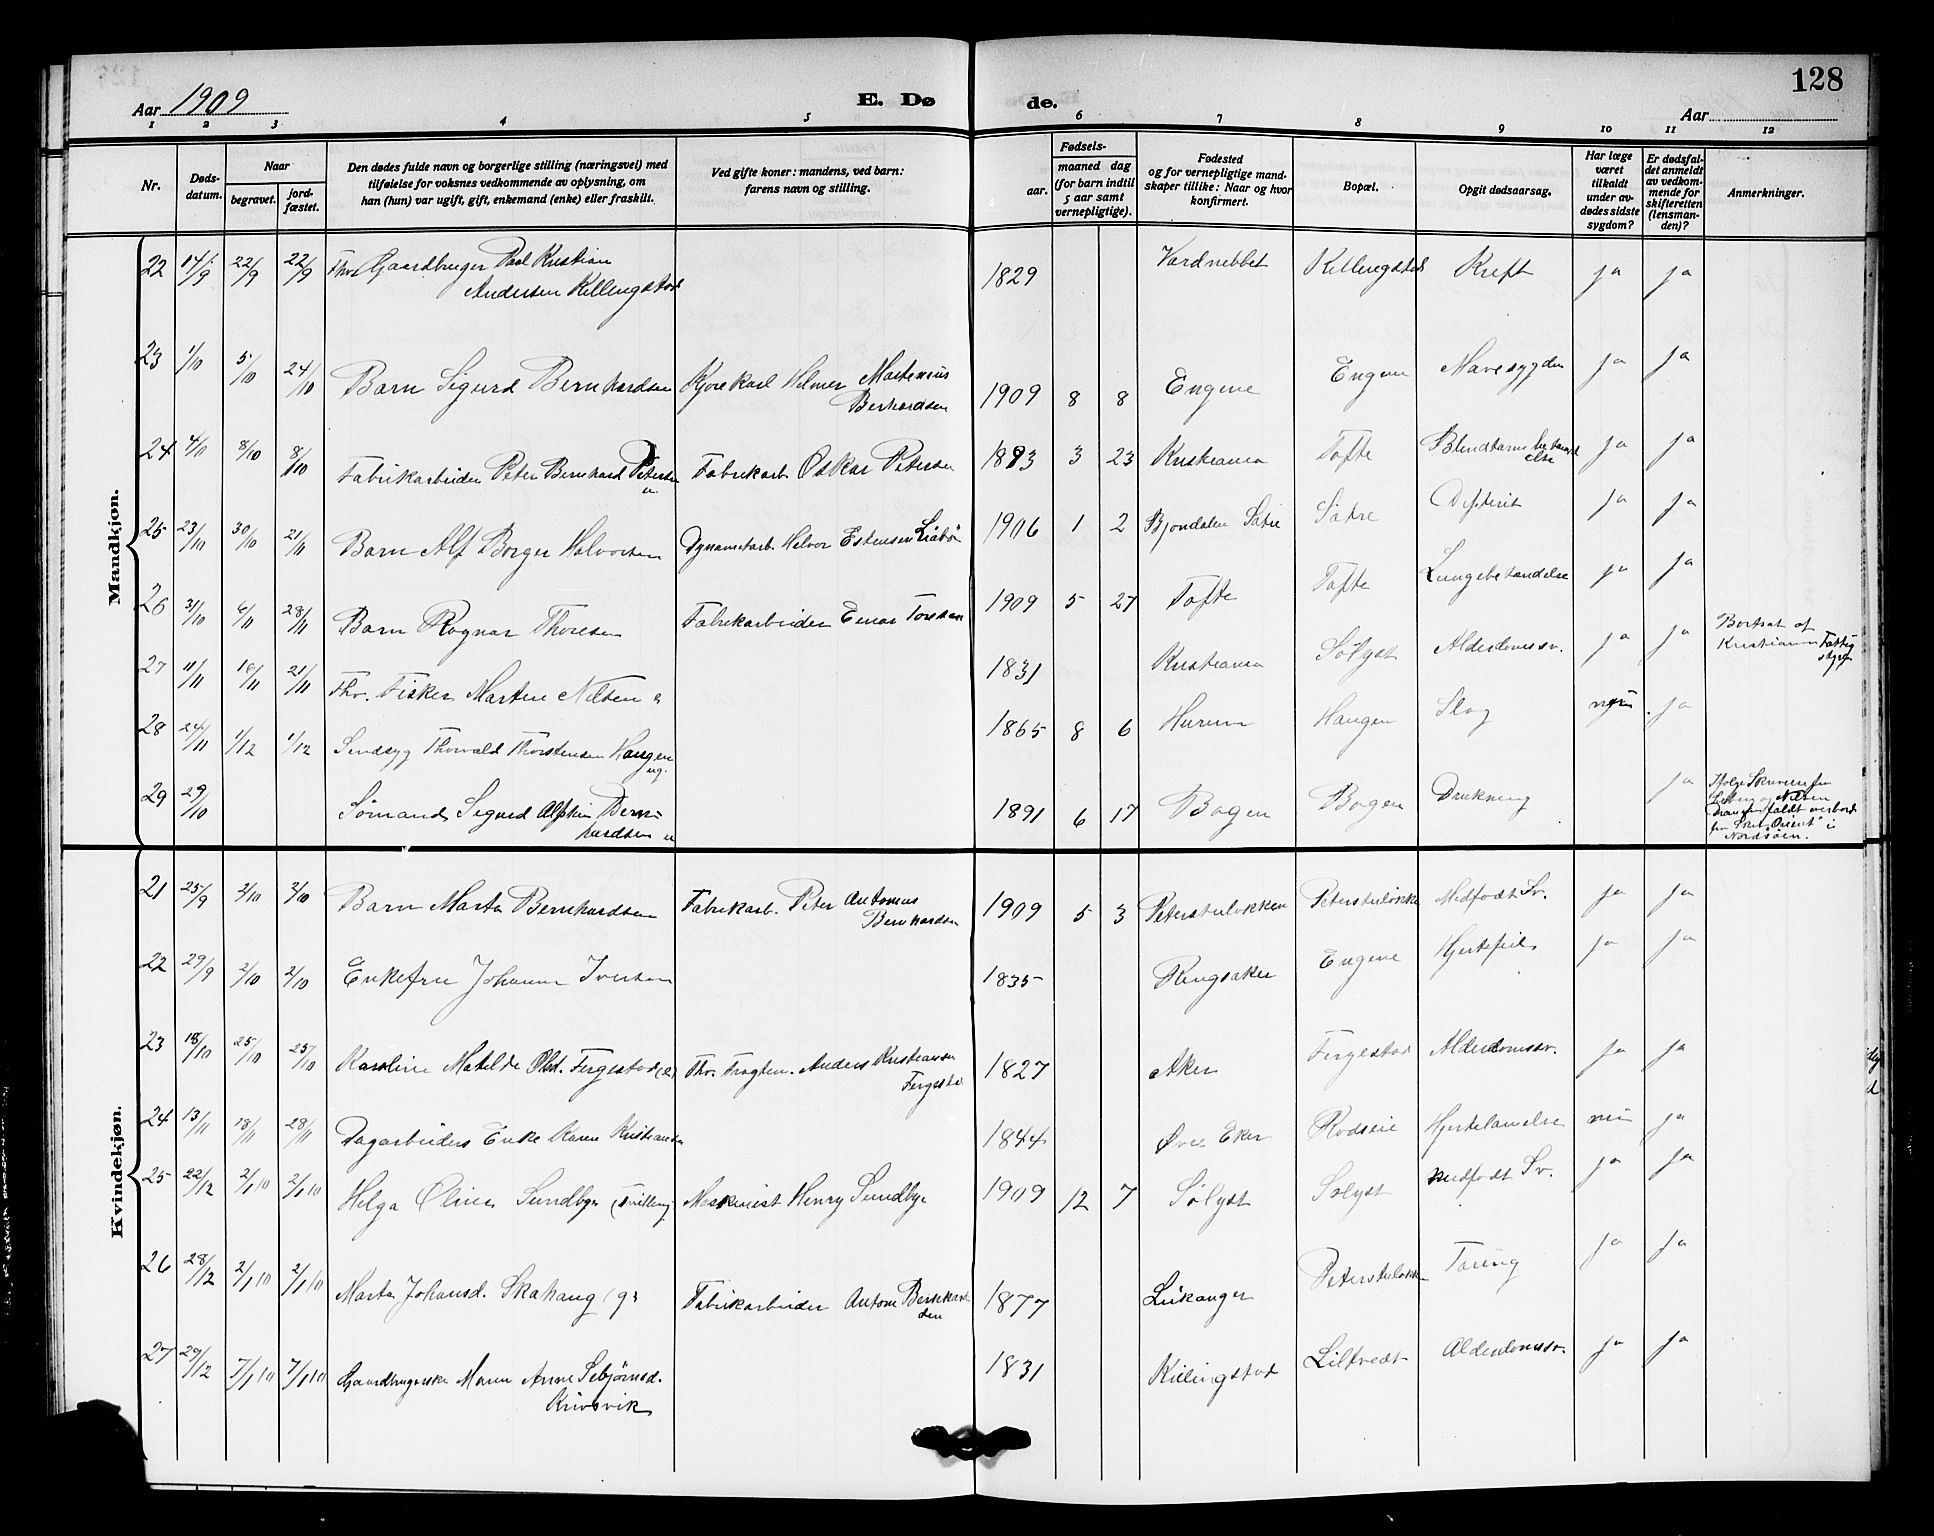 128
Aar 1909
E. Dø
de.
Aar
1 2 3 4 5 6 7 8 9 10 11 12
Nr.
Døds-
datum.
Naar
begravet.
jord-
fæstet.
Den dødes fulde navn og borgerlige stilling (næringsvei) med
tilføielse for voksnes vedkommende av oplysning, om
han (hun) var ugift, gift, enkemand (enke) eller fraskilt.
Ved gifte koner: mandens, ved barn:
farens navn og stilling.
Fødsels-
aar.
maaned dag
(for barn indtil
5 aar samt
vernepligtige).
Fødested
og for vernepligtige mand-
skaper tillike: Naar og hvor
konfirmert.
Bopæl.
Opgit dødsaarsag.
Har læge
været
tilkaldt
under av-
dødes sidste
sygdom?
Er dødsfal-
det anmeldt
av vedkom-
mende for
skifteretten
(lensman-
den)?
Anmerkninger.
Mandkjøn.
22 14/9 22/9 22/9 Fhv. Gaardbruger Paul Kristian 1829 Killingstad Kreft ja ja
Andersen Killingstad
23 1/10 5/10 24/10 Barn Sigurd Bernhardsen Kjørekarl Helmer Martenius 1909 8 8 Engene Engene Mavesygdom ja ja
Berhardsen
24 4/10 8/10 8/10 Fabrikarbeider Peter Bernhard Petersen Fabrikarb Oskar Petersen 1893 3 23 Kristiania Tofte Blindtarmsbetænd ja ja
u. else
25 23/10 30/10 21/11 Barn Alf Borger Halvorsen Dynamitarb. Halvor Estensen 1906 1 2 Bjøndalen Sætre Sætre Difterit ja ja
26 31/10 6/11 28/11 Barn Ragnar Thoresen Fabrikarbeider Einar 1909 5 27 Tofte Tofte Lungebetændelse ja ja
27 11/11 16/11 21/11 Fhv. Fisker Martin Nilsen 1831 Kristiania Sølyst Alderdomssv. ja ja Bortsat af
Kristiania Fattig
styre
28 24/11 1/12 1/12 Sindssyg Thorvald Thorstensen Haugen 1865 8 6 Hurum Haugen Slag ja
ug.
29 29/10 Sømand Sigurd Bern- 1891 6 17 Bogen Bogen Drukning ja Ifølge Skrivelse fra
hardsen u
Drammen faldt overbord
fra Skib "Orient" i
Nordsøen.
Kvindekjøn.
21 25/9 2/10 2/10 Barn Marta Bernhardsen Fabrikarb. Peter Antonius 1909 5 3 Petersteløkken Petersteløkke Medfødt Sv. ja ja
Bernhardsen
22 29/9 2/10 2/10 Enkefru Johanne Iversen 1835 Ringsaker Engene Hjertefeil ja ja
23 18/10 25/10 25/10 Karoline Matilde Olsd. Fergestad (e) Fhv. Anders Kristiansen 1827 Aker Fergestad Alderdomssv. ja ja
Fergestad
24 13/11 18/11 28/11 Dagarbeiders Enke Karen Kristiansen 1844 Øvre Eker Hjertelamelse nei ja
25 22/12 2/1 10 2/1 10 Helga Oline Sundbye (Tvilling) Maskinist Henry Sundbye 1909 12 7 Sølyst Sølyst medfødt Sv. ja ja
26 28/12 2/1 10 2/1 10 Marta Johansd. Skahaug (g) Fabrikarbeider Anton Bernhard 1877 Leikanger Petersteløkken Tæring ja ja
sen
27 29/12 7/1 10 7/1 10 Gaardbrugerske Maren Anne Sebjørnsd. 1831 Killingstad Liltvedt Alderdomssv. ja ja